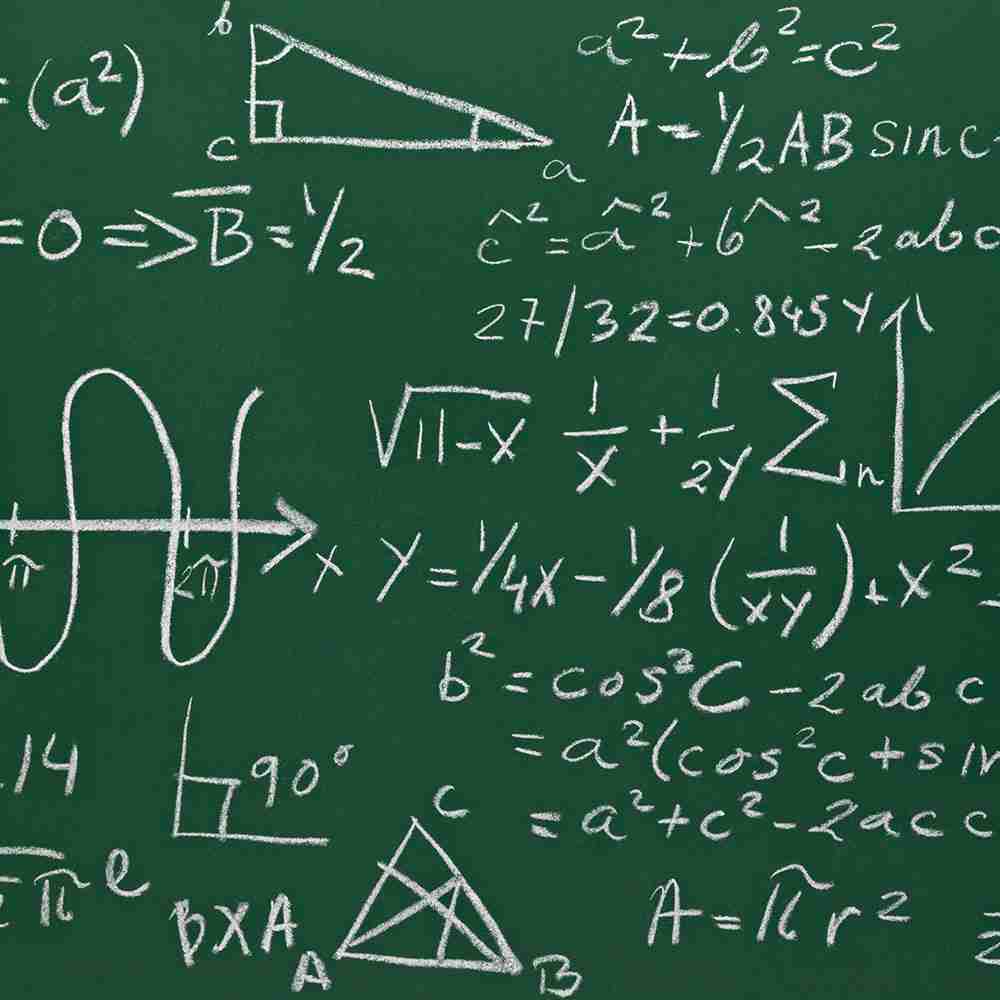 b
a² + b² = c²
= (a²)
c
a
A = 1/2 AB sin c
= 0 => B̅ = 1/2
ĉ² = â² + b^² - 2ab
27/32 = 0.845 Y
√11-x 1/x + 1/2Y Σn
π 2π x Y = 1/4x - 1/8 (1/xy) + x²
b² = cos²C - 2ab c
.14 90° = a²(cos²c + sin
= a² + c² - 2acc
C
π e
BXA A B A = πr²